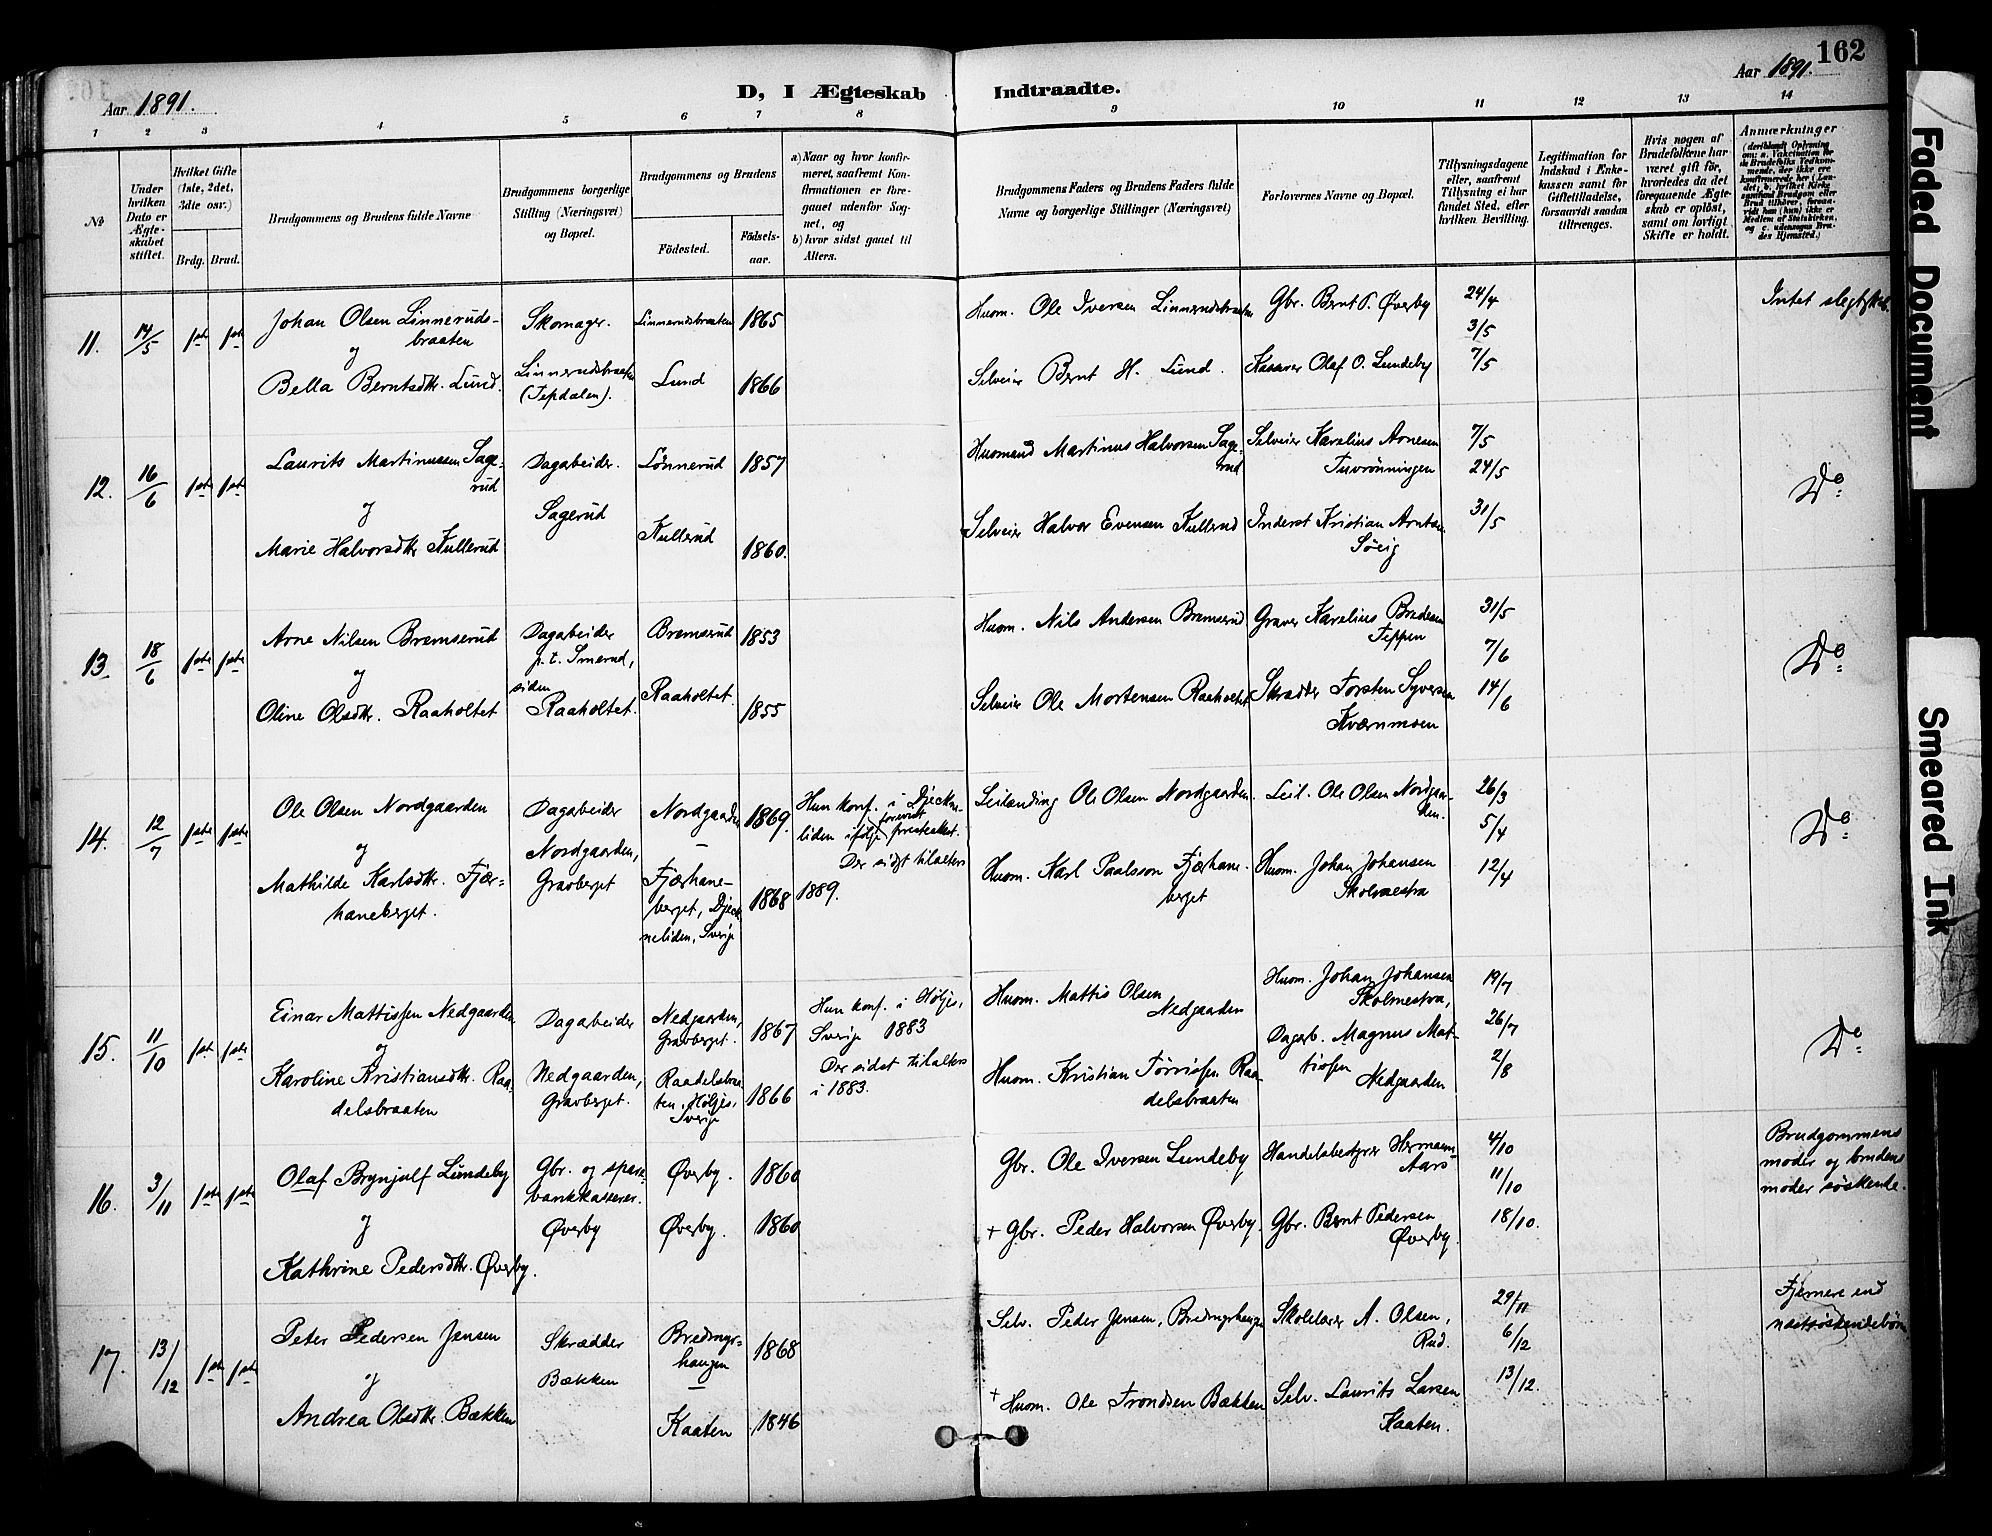 162
Aar 1891.
D, I Ægteskab Indtraadte.
Aar 1891.
1 2 3 4 5 6 7 8 9 10 11 12 13 14
№
Under hvilken Dato er Ægteskabet stiftet.
Hvilket Gifte (1ste, 2det, 3dte osv.)
Brdg. Brud.
Brudgommens og Brudens fulde Navne
Brudgommens borgerlige Stilling (Næringsvei) og Bopæl.
Brudgommens og Brudens
Födested.
Födselsaar.
a) Naar og hvor konfirmeret, saafremt Konfirmationen er foregaaet udenfor Sognet, og
b) hvor sidst gaaet til Alters.
Brudgommens Faders og Brudens Faders fulde Navne og borgerlige Stillinger (Næringsvei)
Forlovernes Navne og Bopæl.
Tillysningsdagene eller, saafremt Tillysning ei har fundet Sted, efter hvilken Bevilling.
Legitimation for Indskud i Enkekassen samt for Giftetilladelse, forsaavidt saadan tiltrænges.
Hvis nogen af Brudefolkene har været gift för, hvorledes da det foregaaende Ægteskab er oplöst, samt om lovligt Skifte er holdt.
Anmærkninger
11. 14/5 1ste 1ste
Johan Olsen Linnerudsbraaten
og
Bella Berntsdtr. Lund.
Skomager.
Linnerudsbraaten
(Tepdalen).
Linnerudsbraaten 1865
Lund 1866
Husm. Ole Iversen Linnerudsbraaten
Selveier Bernt H. Lund.
Gbr. Bernt P. Øverby
Kasserer Olaf O. Lundeby
24/4
3/5
7/5
Intet slegtskab.
12. 16/6 1ste 1ste
Laurits Martinussen Sagerud
og
Marie Halvorsdtr. Kullerud
Dagarbeider.
Sagerud
Lönnerud 1857
Kullerud 1860.
Husmand Martinus Halvorsen Sagerud
Selveier Halvor Evensen Kullerud
Selveier Karelius Arnesen
Tuvrönningen
Inderst Kristian Arntsen
7/5
24/5
31/5
Do
13. 18/6 1ste 1ste
Arne Nilsen Bremserud
og
Oline Olsdtr. Raaholtet
Dagarbeider
p. t. Smerud,
siden
Raaholtet.
Bremserud 1853
Raaholtet. 1855
Husm. Nils Andersen Bremserud
Selveier Ole Mortensen Raaholtet
Graver Karelius Bredesen
Teppen
Skrædder Torsten Syversen
Kværnmoen
31/5
7/6
14/6
Do
14. 12/7 1ste 1ste
Ole Olsen Nordgaarden
og
Mathilde Karlsdtr. Fjærhaneberget.
Dagarbeider
Nordgaarden,
Gravberget
Nordgaarden 1869.
Fjærhaneberget, Djeckneliden, Sverige 1868
Hun konf. i Djeckneliden ifølge forevist presteattest.
Der sidst tilalters
1889.
Leilænding Ole Olsen Nordgaarden.
Husm. Karl Paalsson Fjærhaneberget
Leil. Ole Olsen Nordgaarden.
Husm. Johan Johansen
Skolmestra
26/3
5/4
12/4
Do
15. 11/10 1ste 1ste
Einar Mattissen Nedgaarden
og
Karoline Kristiansdtr. Raadelsbraaten
Dagarbeider
Nedgaarden,
Gravberget.
Nedgaarden,
Gravberget. 1867
Raadelsbraaten, Höljes,
Sverige 1866
Hun konf. i Höljes,
Sverige 1883
Der sidst tilalters
i 1883.
Husm. Mattis Olsen
Nedgaarden
Husm. Kristian Tørrissen Raadelsbraaten
Husm. Johan Johansen
Skolmestra,
Dagarb. Magnus Mattissen
Nedgaarden
19/7
26/7
2/8
Do
16. 3/11 1ste 1ste
Olaf Brynjulf Lundeby
og
Kathrine Pedersdtr. Øverby.
Gbr. og sparebankkasserer.
Øverby
Øverby. 1860
Øverby. 1860
Gbr. Ole Iversen Lundeby
+ Gbr. Peder Halvorsen Øverby.
Handelsbestyrer Hermann
Aars
Gbr. Bernt Pedersen
Øverby.
4/10
11/10
18/10.
Brudgommens
moder og brudens
moder söskende.
17. 13/12 1ste 1ste
Peter Pedersen Jensen
og
Andrea Olsdtr. Bækken
Skrædder
Bækken
Bredungshaugen 1868
Kaaten 1846
Selv. Peder Jensen, Bredungshaugen
+ Husm. Ole Trondsen Bækken
Skolelærer A. Olsen,
Rud.
Selv. Laurits Larsen
Kaaten.
29/11
6/12
13/12.
Fjernere end
næstsöskendebörn
Faded Document
Smeared Ink